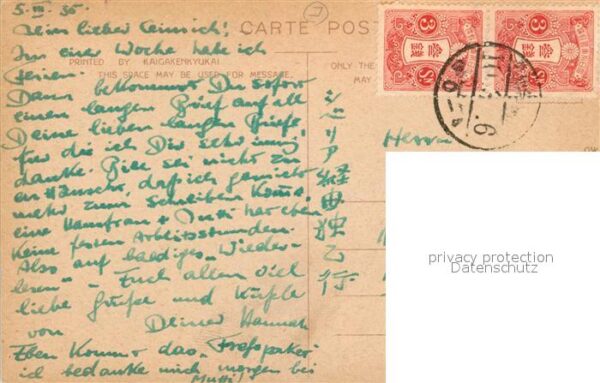 5. III. 35.
Mein lieber Heinrich!
In einer Woche habe ich
Ferien.
Dann bekommst Du sofort
einen langen Brief auf all
Deine lieben langen Briefe
für die ich Dir sehr innig
danke. Bitte sei nicht
mehr zum Schreiben komme,
eine Hausfrau + Mutti hat eben
keine festen Arbeitsstunden.
Also auf baldiges „Wieder-
lesen" – Euch allen viel
liebe Grüße und Küsse
von Deiner Hannah
Eben kommt das
ich bedanke mich morgen bei
Mutti!
CARTE POST
PRINTED BY KAIGAKENKYUKAI
THIS SPACE MAY BE USED FOR MESSAGE.
ONLY THE
MAY
3 參錢 3 Sn
3 參錢 3 Sn
シベリヤ經由獨乙行
Herrn
privacy protection
Datenschutz